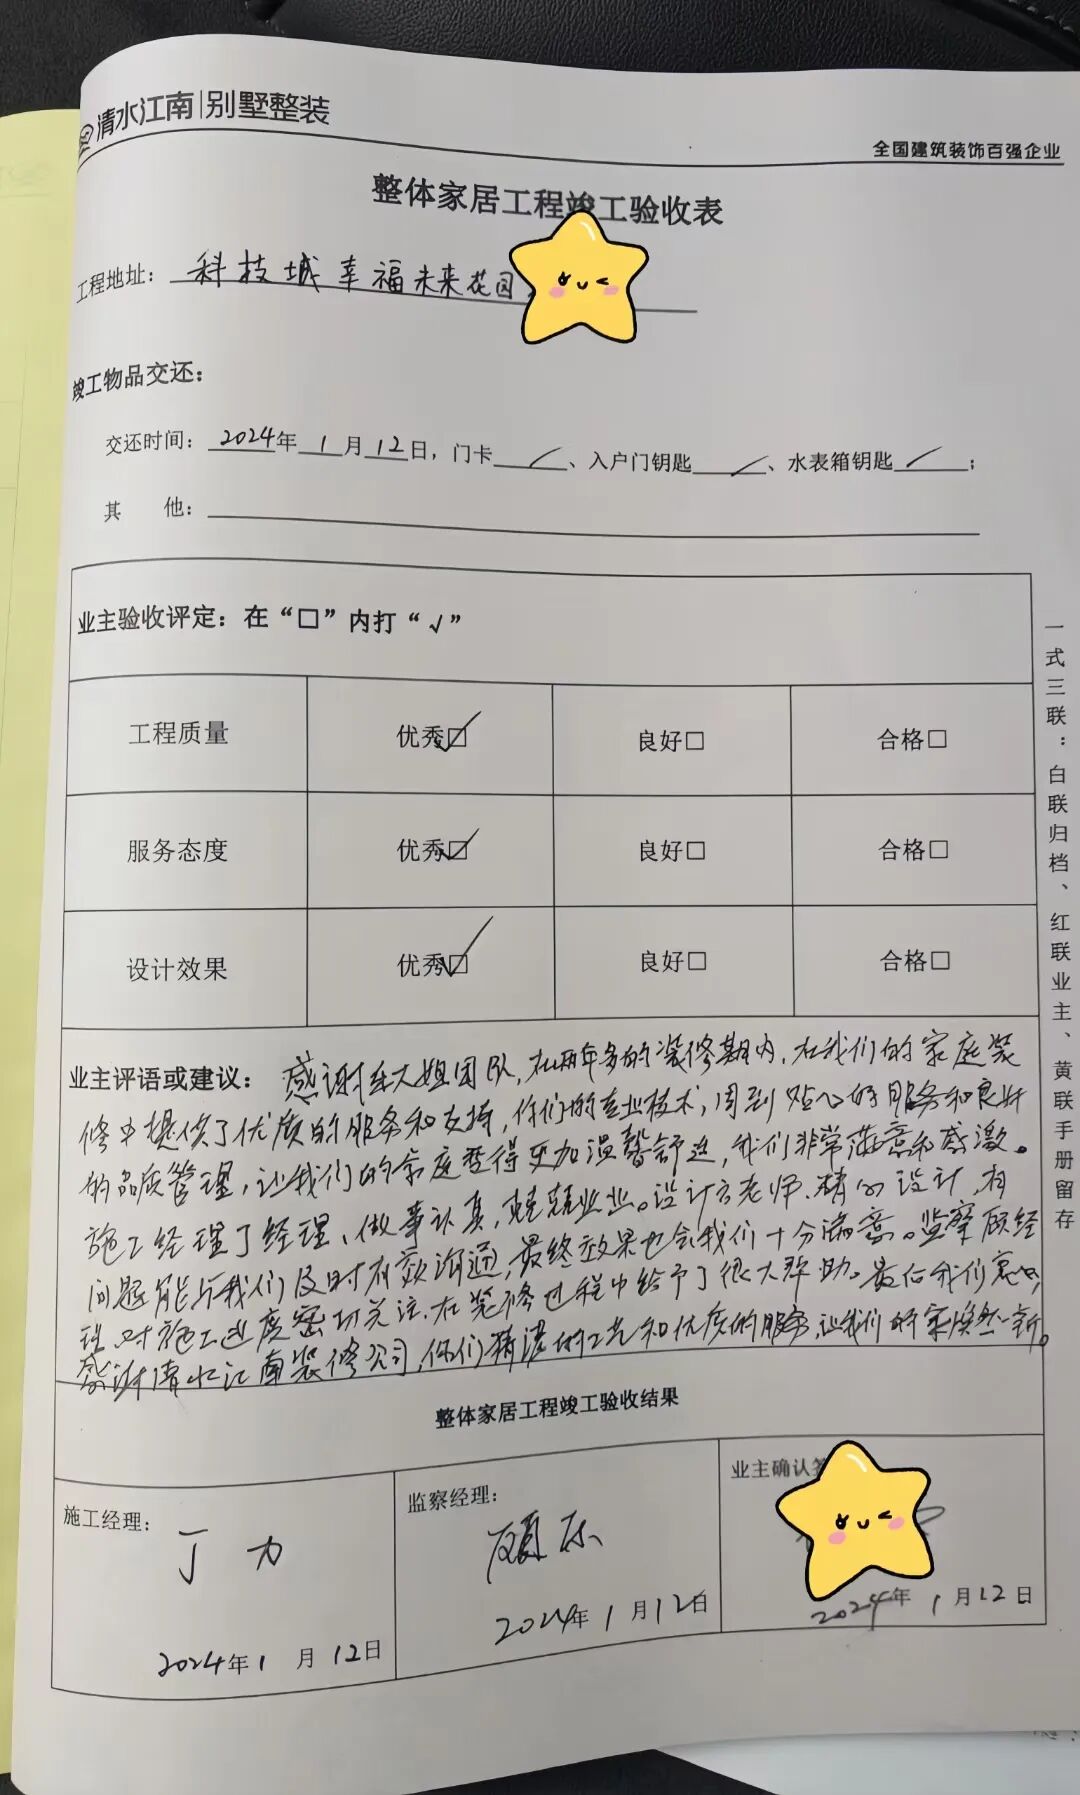 清水江南|别墅整装
全国建筑装饰百强企业
整体家居工程竣工验收表
工程地址：科技城幸福未来花园
竣工物品交还：
交还时间：2024年1月12日，门卡／、入户门钥匙／、水表箱钥匙／；
其 他：
业主验收评定：在“□”内打“√”
工程质量 优秀☑ 良好□ 合格□
服务态度 优秀☑ 良好□ 合格□
设计效果 优秀☑ 良好□ 合格□
业主评语或建议：感谢朱大姐团队，在两年多的装修期内，在我们的家庭装
修中提供了优质的服务和支持，你们的专业技术，周到贴心的服务和良好
的品质管理，让我们的家庭变得更加温馨舒适，我们非常满意和感激。
施工经理丁经理，做事认真，兢兢业业。设计方老师，精心设计，有
问题能与我们及时有效沟通，最终效果也令我们十分满意。监察顾经
理，对施工进度密切关注，在装修过程中给予了很大帮助。最后我们衷心
感谢清水江南装修公司，你们精湛的工艺和优质的服务，让我们的家焕然一新。
整体家居工程竣工验收结果
施工经理：丁力
2024年1月12日
监察经理：顾东
2024年1月12日
业主确认
2024年1月12日
一式三联：白联归档、红联业主、黄联手册留存